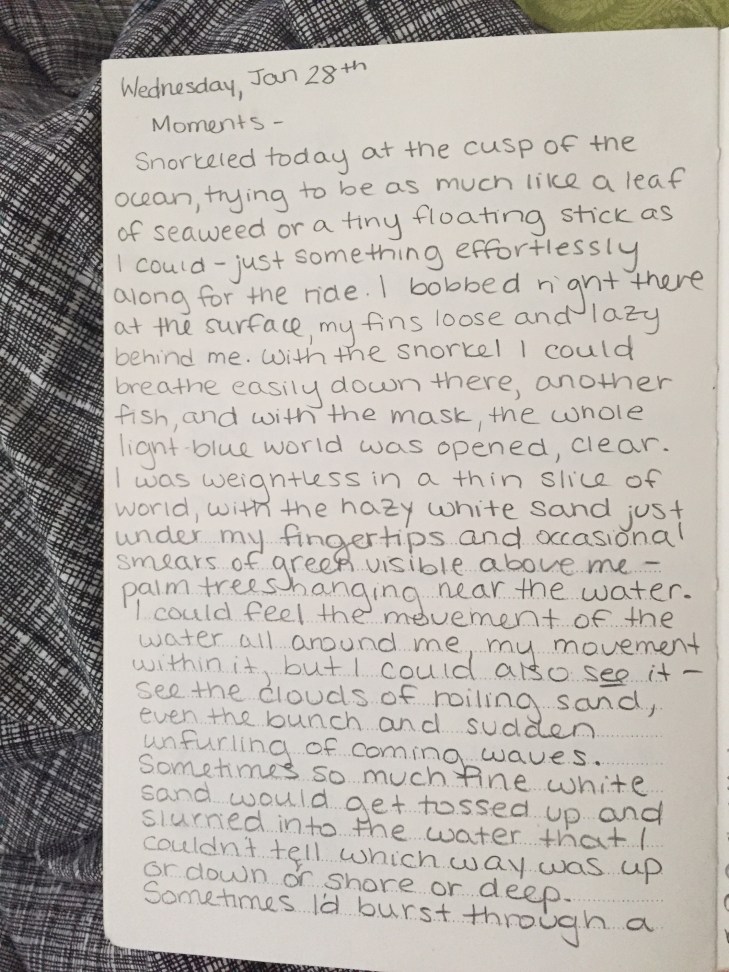 Wednesday, Jan 28th
Moments -
Snorkeled today at the cusp of the
ocean, trying to be as much like a leaf
of seaweed or a tiny floating stick as
I could - just something effortlessly
along for the ride. I bobbed right there
at the surface, my fins loose and lazy
behind me. With the snorkel I could
breathe easily down there, another
fish, and with the mask, the whole
light-blue world was opened, clear.
I was weightless in a thin slice of
world, with the hazy white sand just
under my fingertips and occasional
smears of green visible above me -
palm trees hanging near the water.
I could feel the movement of the
water all around me, my movement
within it, but I could also see it -
see the clouds of roiling sand,
even the bunch and sudden
unfurling of coming waves.
Sometimes so much fine white
sand would get tossed up and
slurried into the water that I
couldn't tell which way was up
or down or shore or deep.
Sometimes I'd burst through a